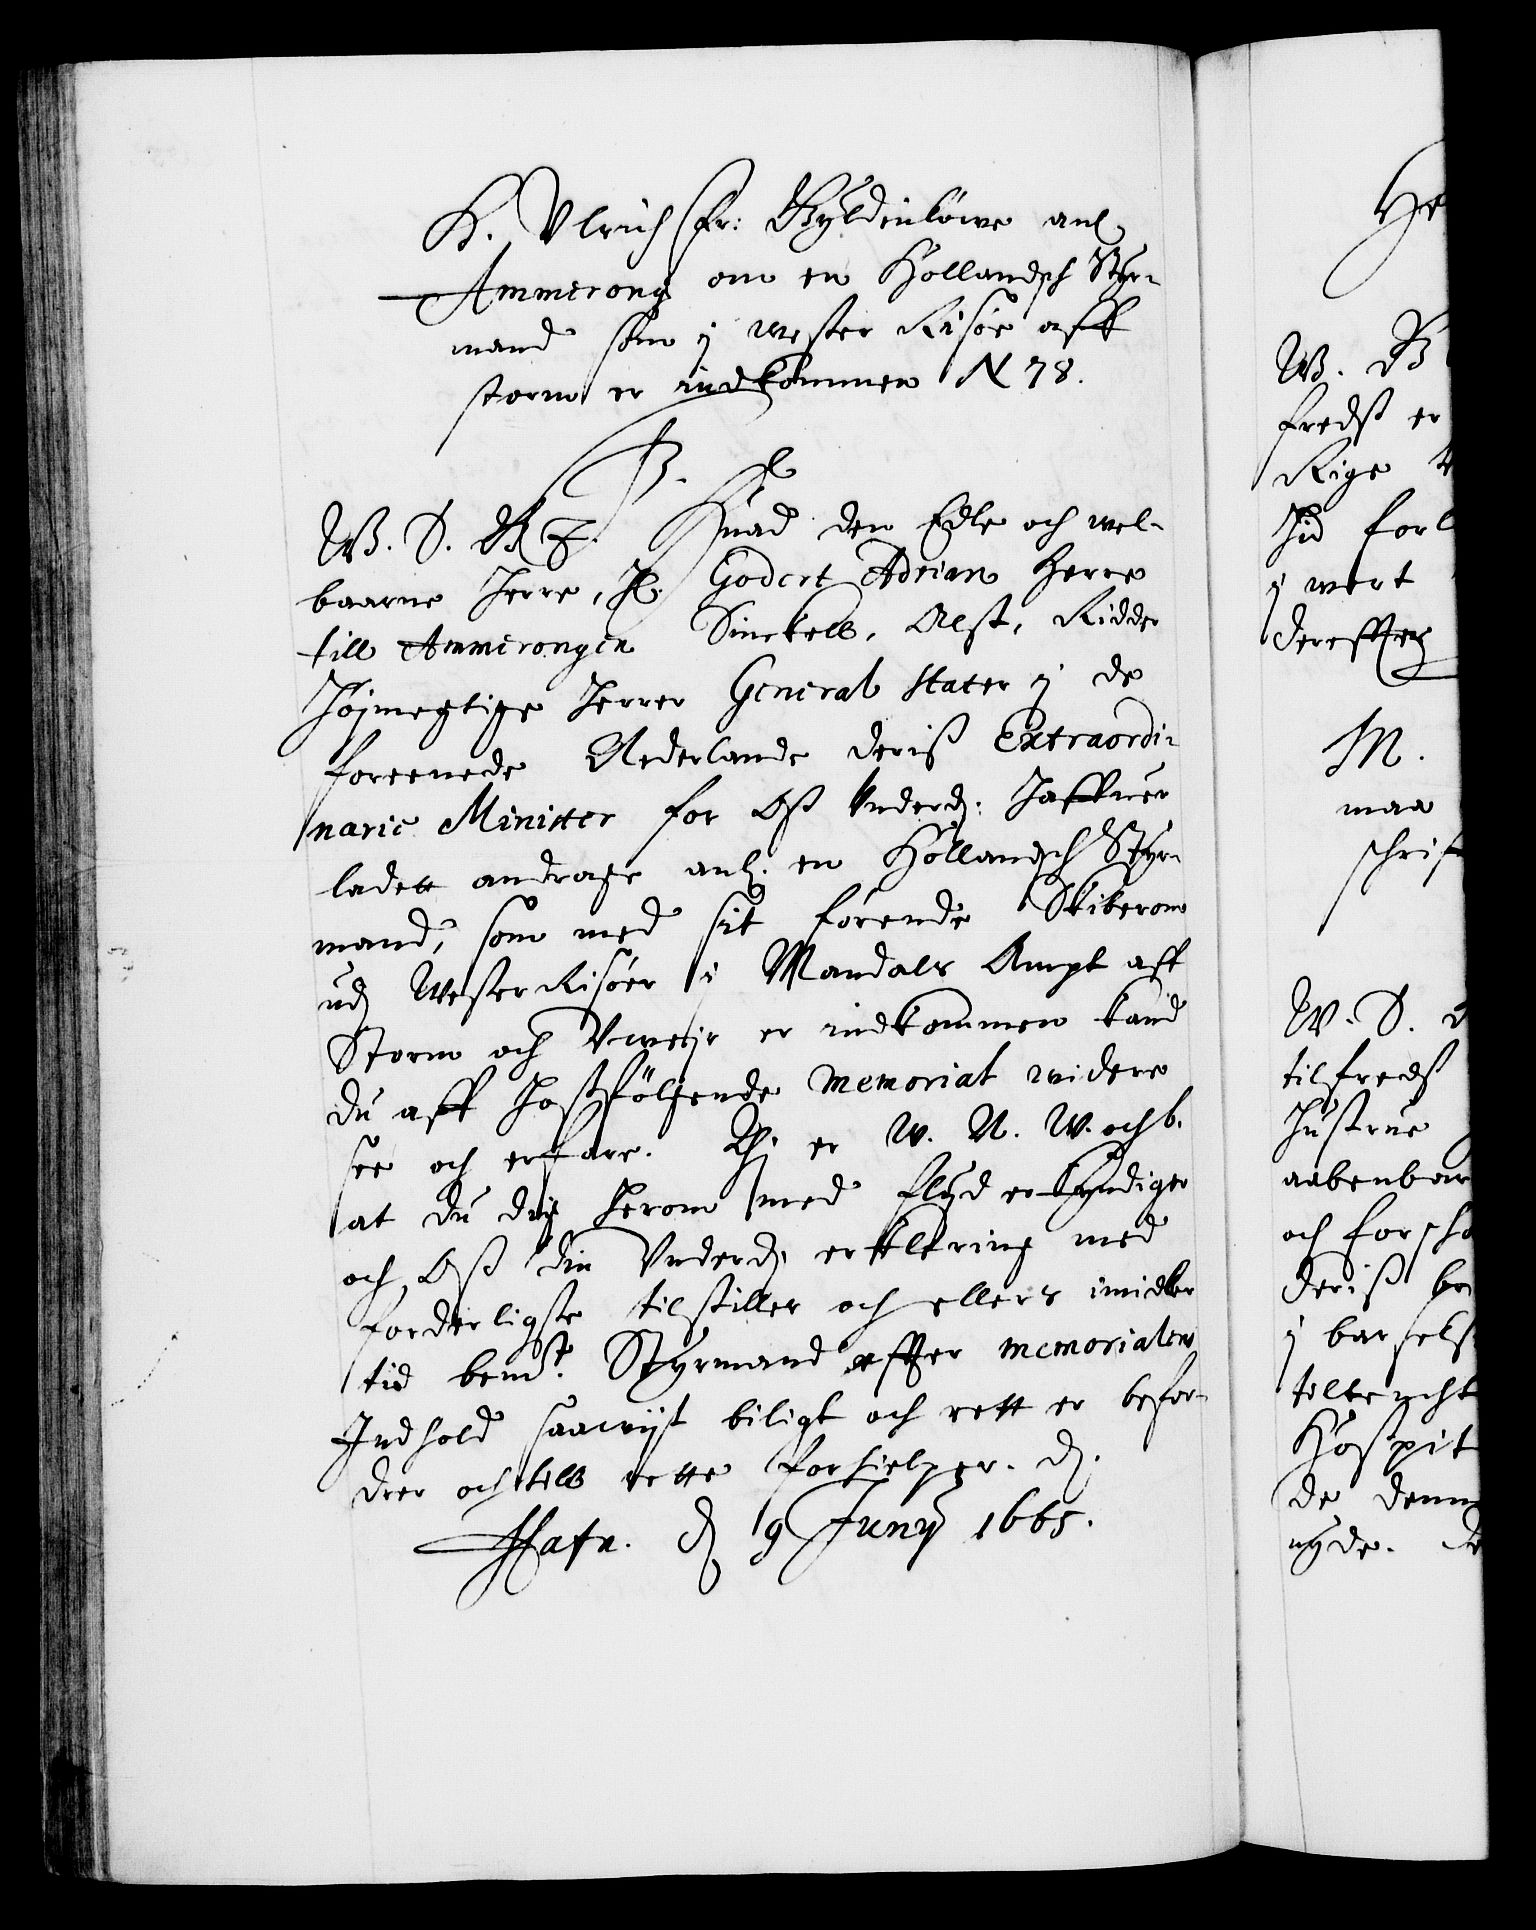 H. Vlrich Fr: Gyldenløwe anl.
Ammerong om en Hollandsch Styr-
mand som j wester Risøe aff
storm er indkommen N 78.
W. S. G T. Huad den Edle och wel-
baarne Herre, H. Godert Adrian Herre
till Ammerongen Sinckell, Elst, Ridder
Højmegtige Herrer General stater j de
foreenede Nederlande deris Extraordi-
narie Minister for Oss Vnderd: haffuer
ladett andrage anl. en Hollandsch Styr-
mand, som med sit førende Skiberom
udj WesterRisøer i Mandals Ampt aff
Storm och Vwejr er indkommen kand
du aff hosfølgende Memorial widere
see och erfare. Thi er W. N. W. och b.
at du dig herom med flyd erkyndiger
och Oss din Vnderd. erklering med
forderligste tilstiller och ellers imidler
tid bemt. Styrmand effter memorialens
Indhold saawijt biligt och rett er befor-
drer och till rette forhielper. D.
Hafn. d 9 Junij 1665.
W. G
fredß er
Rige
Tid forl
j wert
dereffter
M.
maa
schrif
W. S.
tilfredß
Hustrue
aabenbar
och forscho
deriß
j barsels
tiltencht
Hospit
de denn
nyde.